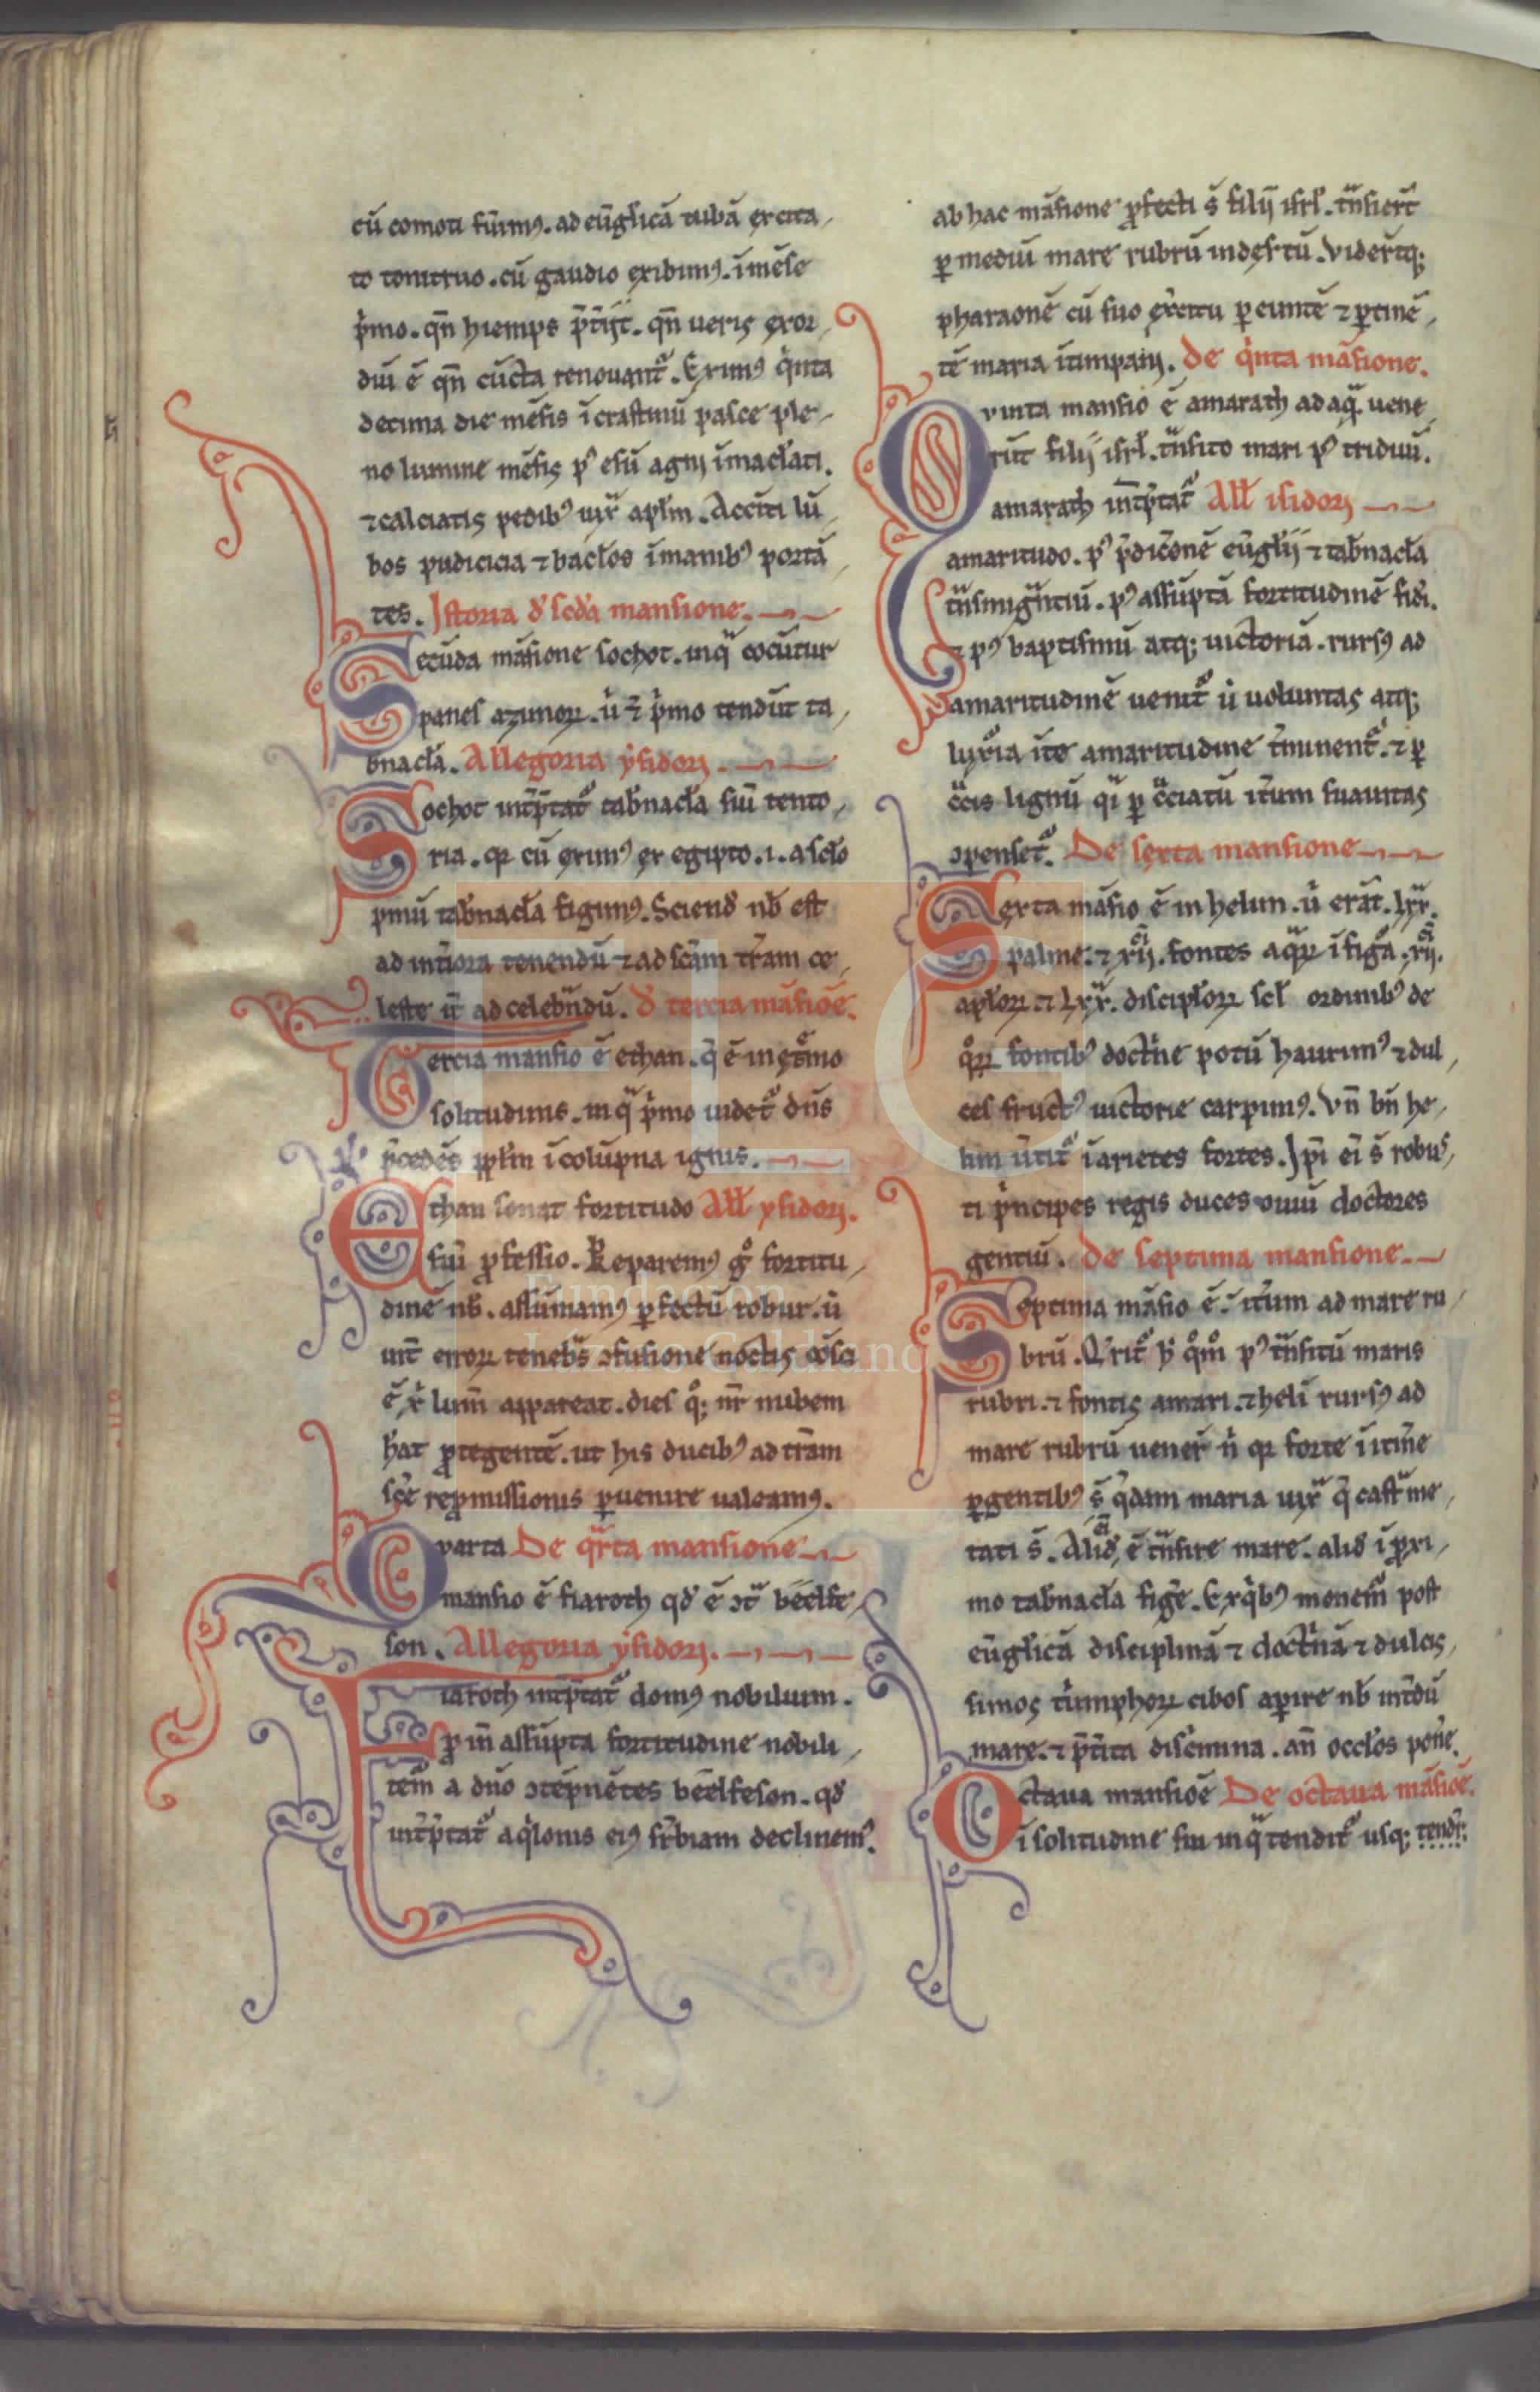 cū comoti fūim⁹. ad eūg̃licā tubā excita,
to tonitruo. cū gaudio exibim⁹. ī mēse
p̍mo. qñ hiemps p̃t̃ijt. qñ ueris exor,
diū ē qñ cūcta renouant᷑. Exim⁹ q̍nta
decima die mēsis ī crastinū pasce ple-
no lumine mēsis p⁹ esū agni īmacl̃ati.
⁊ calciatis pedib⁹ iux̃ apl̃m. Accīti lū,
bos pudicicia ⁊ bacl̃os ī manib⁹ portā,
tes. Istoria d̕ sc̃da mansione.
Secūda māsione sochot. in q̃ cocūtur
panes azimoꝝ. ũ ⁊ p̍mo tendūt ta,
b̃nacl̃a. Allegoria ẏsidori.
Sochot int̃p̃tat᷑ tab̃nacl̃a siũ tento,
ria. qꝛ cū exim⁹ ex egipto .i. a sc̃lo
pmū tab̃nacl̃a figim⁹. Sciend̕ nb̃ est
ad int̃iora tenendū ⁊ ad sc̃am tr̃am ce,
leste ũ ad celeb̃ndū. D̕ tercia māsiōe.
Tercia mansio ē ethan. q̃ ē in ext̃mo
solitudinis. in q̃ p̍mo uidet᷑ dñs
p̃cedēs ppl̃m ī colūpna ignis.
Ethan sonat fortitudo All̃ ysidori.
siũ ꝓfessio. Reparem⁹ g̊ fortitu,
dinē nb̃. assūmam⁹ ꝑfectū robur. ũ
int̃ erroꝝ teneb̃s ↄfusione noctis
lum̃ appareat. dies qͦ; nr̃ nubem
h̃at ꝓtegentē. ut his ducib⁹ ad tr̃am
sc̃e repromissionis ꝑuenire ualeam⁹.
Qvarta De q̃rta mansione
mansio ē fiaroth qd̕ ē ↄt̃ beelse
fon. Allegoria ẏsidori.
Fiaroth int̃p̃tat᷑ dom⁹ nobilium.
ꝓin̄ assūpta fortitudine nobili,
tem̃ a dño ↄtēpnētes beelfeson. qd̕
int̃p̃tat᷑ aq̍lonis ei⁹ declinem⁹.
ab hac māsione ꝓfecti s̄ filij isrl̃. t̃nsiert̃
ꝑ mediū mare rubrū in desertū. Vider̃tq;
pharaonē cū suo exc̃itu ꝑeuntē ⁊ ꝑtinē,
tē maria De q̍nta māsione.
Qvinta mansio ē amarath ad aq̃ uene,
rūt filij isrl̃. t̃nsito mari p⁹ triduū.
amarath int̃p̃tat᷑ All̃ isidori
amaritudo. p⁹ p̃dic̃onē eūgl̃ii ⁊ tab̃nacl̃a
t̃nsmig̃ntiū. p⁹ assūptā fortitudinē fid̕i.
⁊ p⁹ baptismū atq; uictoriā. rurs⁹ ad
amaritudinē uenit᷑ ũ uoluntas atq;
luxr̃ia īte amaritudine t̃minent᷑. ⁊ ꝑ
c̃cis lignū q̍ ꝑ c̃ciatū it̃um suauitas
ↄpenset᷑. De sexta mansione
Sexta māsio ē in helim. ũ erāt .lxx.
palme. ⁊ .xii. fontes aq̃ꝝ ī fig̃a .xii.
apl̃oꝝ ⁊ lxx. discipl̃oꝝ scl̃ ordinib⁹ de
q̊ꝝ fontib⁹ doct̍ne potū haurim⁹ ⁊ dul,
ces fruct⁹ uictorie carpim⁹. Vñ bñ he,
lim ũtit᷑ ī arietes fortes. Ip̃i eĩ s̄ robu⁹,
ti p̍ncipes regis duces ouiū doctores
gentiū. De septima mansione.
Septima māsio ē it̃um ad mare ru,
brū. Q̃rit᷑ h̍ q̊m̊ p⁹ t̃nsitū maris
rubri. ⁊ fontis amari. ⁊ helī rurs⁹ ad
mare rubrū uener̃ ñ qꝛ forte ī itiñe
ꝑgentib⁹ s̄ q̃dam maria iux̃ q̃ cast̃me,
tati s̄. Aliḋ ē t̃nsire mare. aliḋ ī ꝓxi,
mo tab̃nacl̃a fig̃e. Ex q̍b⁹ monem̃ post
eūg̃licā disciplinā ⁊ doct̍nā ⁊ dulcis,
simos t̍umphoꝝ cibos aꝑire nb̃ int̃dū
mare. ⁊ p̃t̃ita disc̃imina. añ occl̃os pon̕e.
Octaua mansiōe De octaua māsiōe.
ī solitudine sin in q̃ tendit᷑ usq; tendr̃: